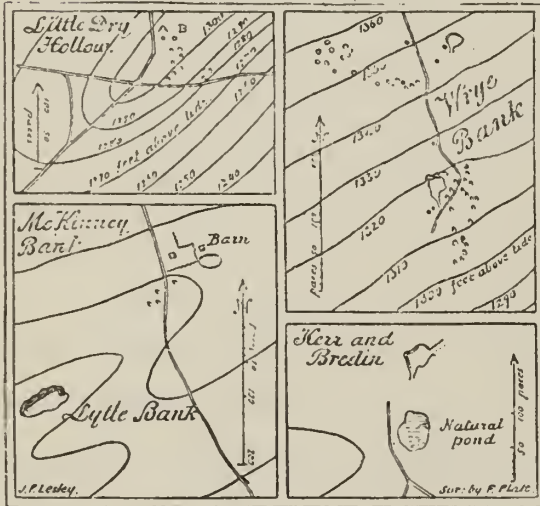 Little Dry
Hollow.
B
1300
1290
1280
1270 feet above tide
1260
1250
1240
paces
50
100
1360
1350
1340
1330
1320
1310
1300 feet above tide
1290
Wrye
Bank
paces 50
McKinney
Bank
Barn
Lytle Bank
J.P. Lesley.
Kerr and
Bredin
Natural
pond
50
100 paces
Sur: by F. Platt.